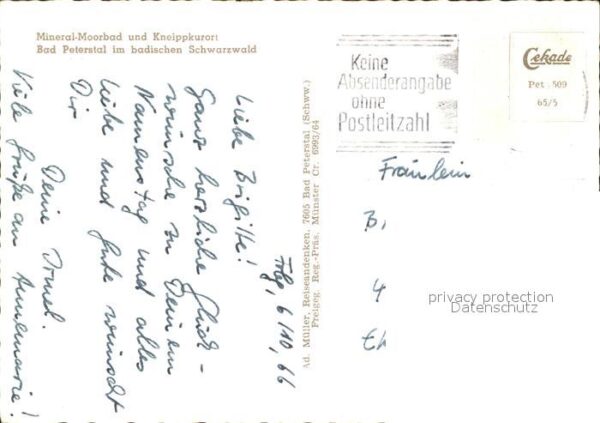 Mineral-Moorbad und Kneippkurort
Bad Peterstal im badischen Schwarzwald
Fbg, 6/10, 66
Liebe Brigitte!
Ganz herzliche Glück-
wünsche zu Deinem
Namenstag und alles
Liebe und Gute wünscht
Dir
Deine
Viele Grüße an Annemarie!
Ad. Müller, Reiseandenken, 7605 Bad Peterstal (Schww.)
Freigeg. Reg.-Präs. Münster Cr. 6993/64
Keine
Absenderangabe
ohne
Postleitzahl
Cekade
Pet. 509
65/5
Fräulein
B
4
Eh
privacy protection
Datenschutz